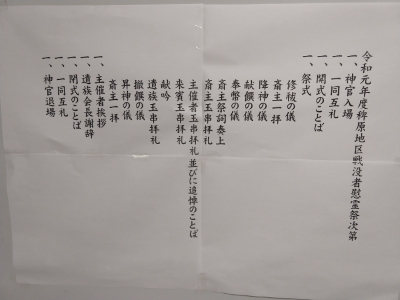 令和元年度稗原地区戦没者慰霊祭次第
一、神官入場
一、一同互礼
一、開式のことば
一、祭式
修祓の儀
斎主一拝
降神の儀
献饌の儀
奉幣の儀
斎主祭詞奏上
斎主玉串拝礼
主催者玉串拝礼 並びに追悼のことば
来賓玉串拝礼
献吟
遺族玉串拝礼
撤饌の儀
昇神の儀
斎主一拝
一、主催者挨拶
一、遺族会長謝辞
一、閉式のことば
一、一同互礼
一、神官退場